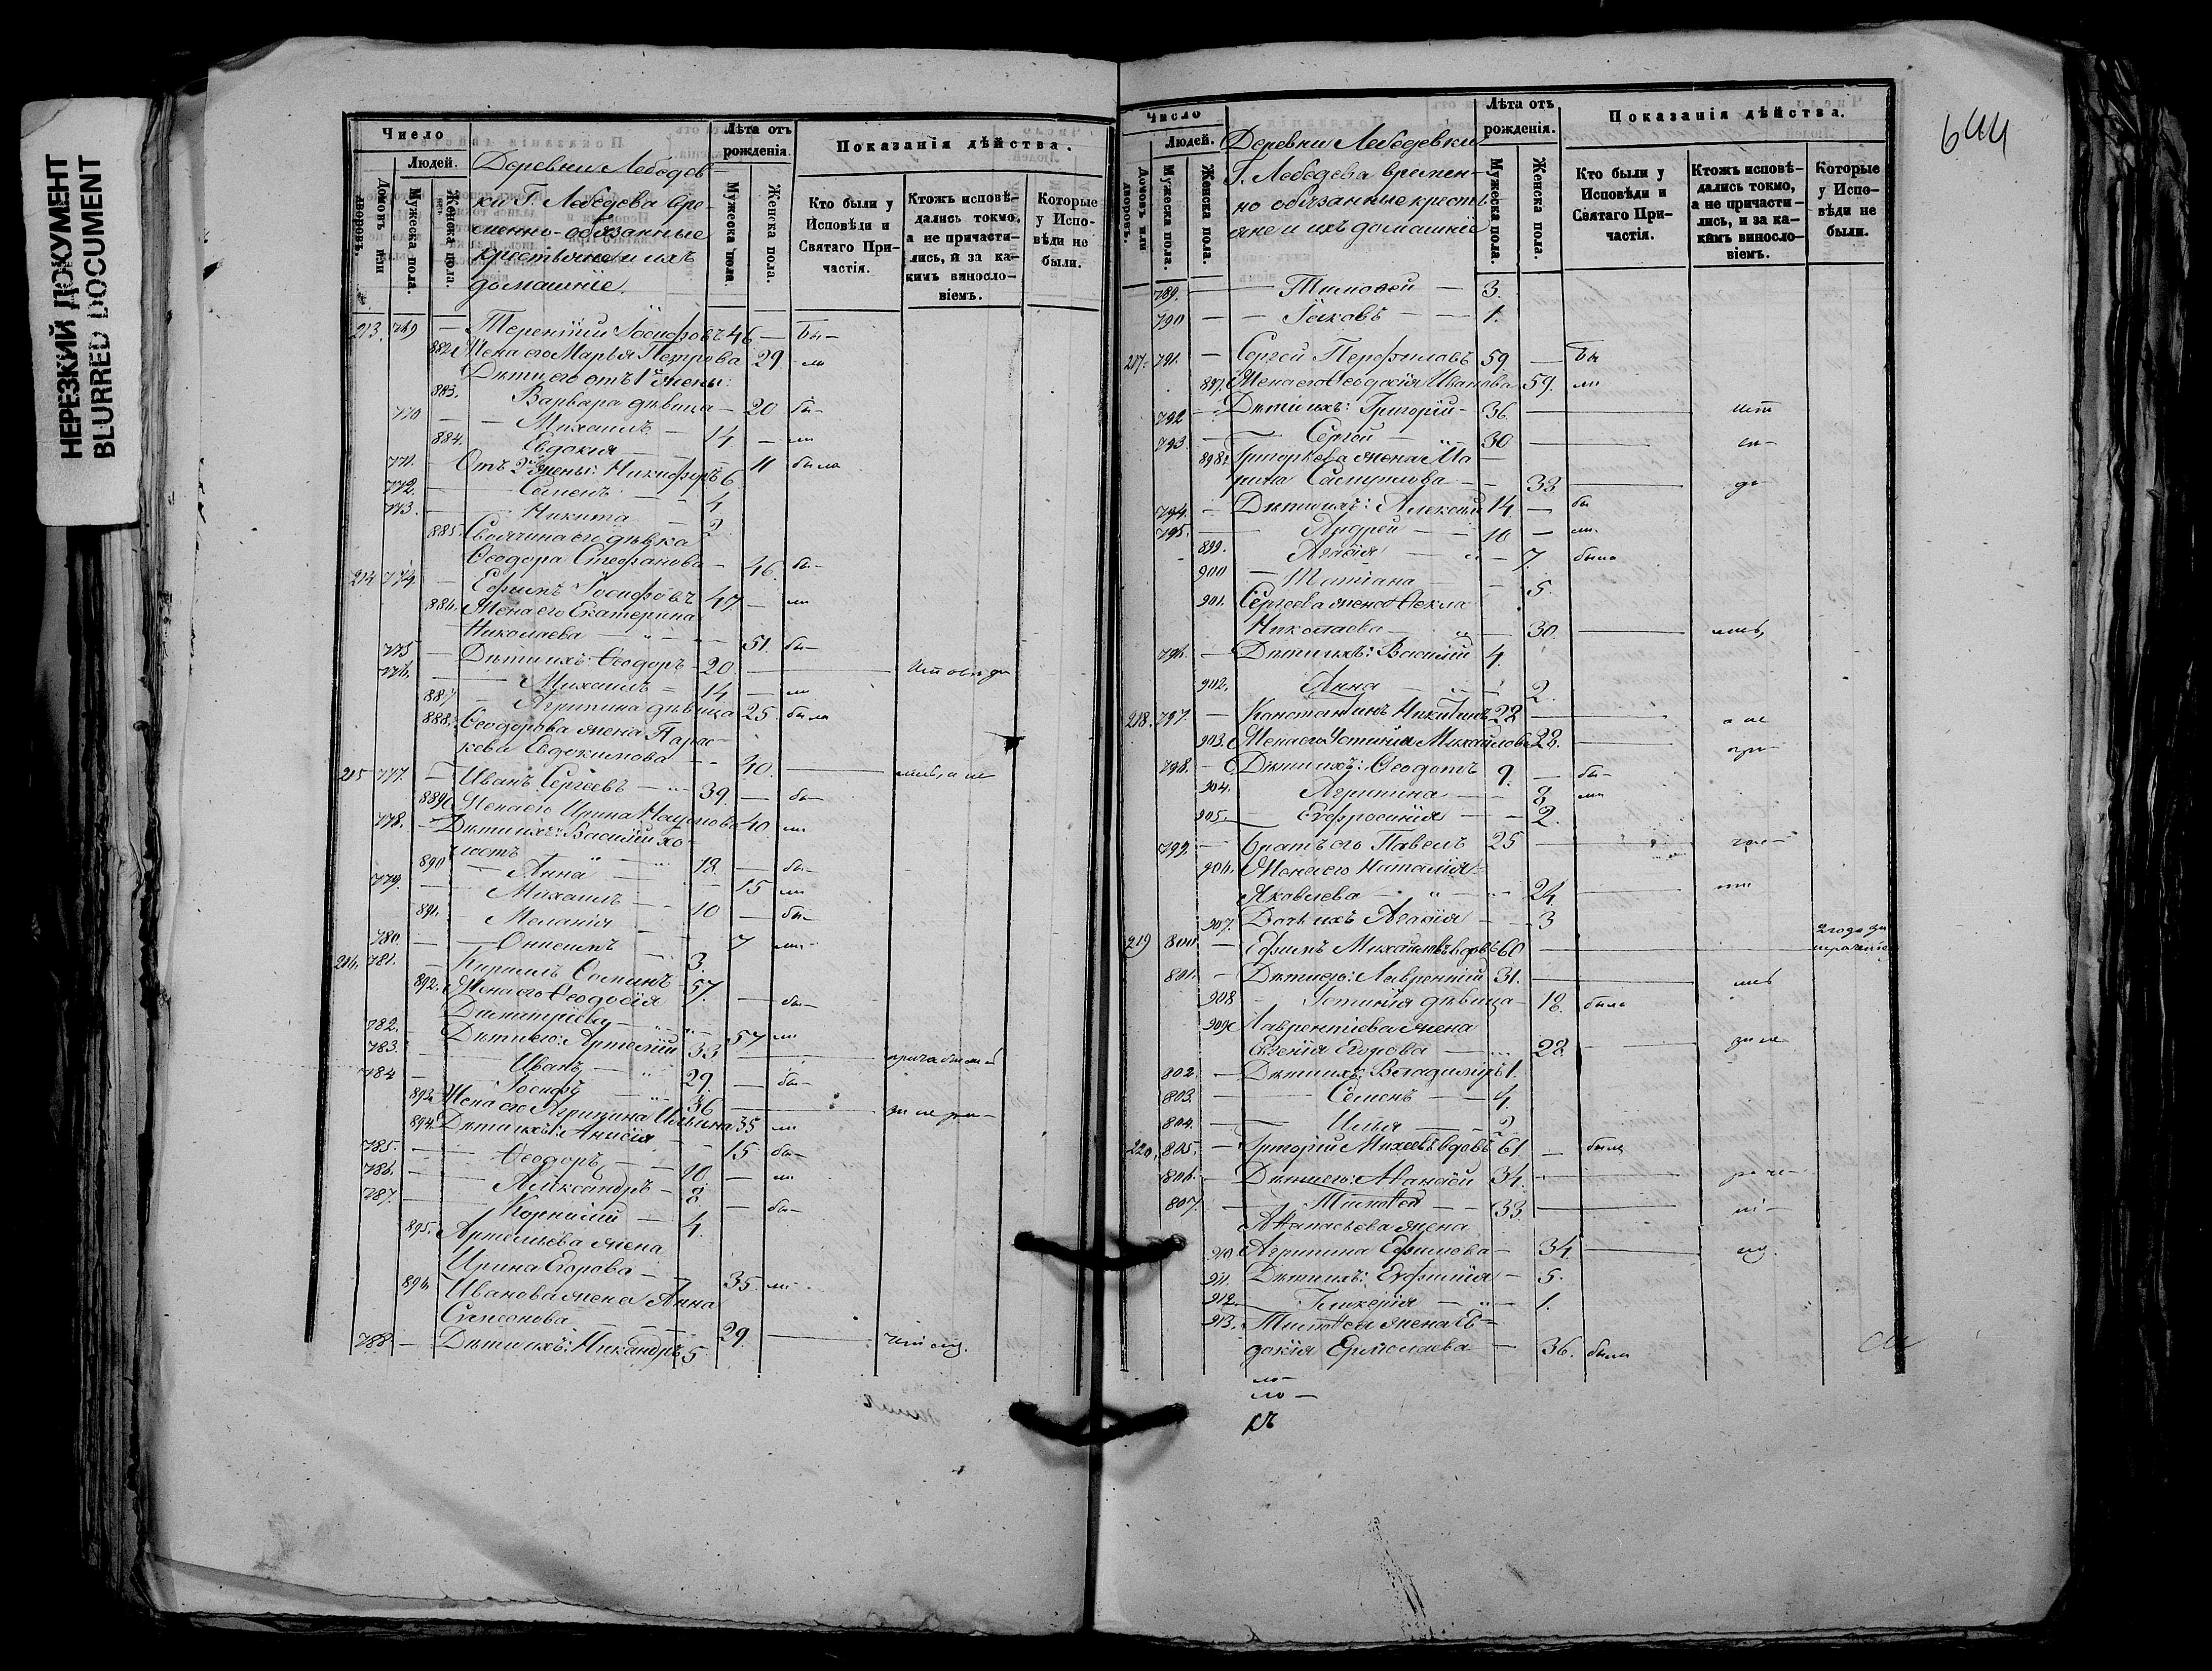 НЕРЕЗКИЙ ДОКУМЕНТ
BLURRED DOCUMENT
Число
Людей.
Домовъ или дворовъ.
Мужеска пола.
Женска пола.
Деревни Лебедев-
ки Г. Лебедева вре-
менно-обязанные
крестьяне и ихъ
домашніе.
Лѣта отъ рожденія.
Мужеска пола.
Женска пола.
Показанія дѣйства.
Кто были у Исповѣди и Святаго При-частія.
Ктожъ исповѣ-дались токмо, а не причасти-лись, и за ка-кимъ винсло-віемъ.
Которые у Испо-вѣди не были.
213. 769 — Терентій Іосифовъ 46 — бы-
882 Жена его Марья Петрова 29 ли
Дѣти его отъ 1й жены:
883. Варвара дѣвица — 20 бы-
770 — Михаилъ — 14 — ли
884. Евдокія — 11 была
771. — Отъ 2й жены: Никифоръ 6
772. — Семенъ — 4
773. — Никита — 2
885. Своячина его дѣвка
Ѳеодора Стефанова — 46. бы-
214 774 — Ефимъ Іосифовъ 47 — ли
886. Жена его Екатерина
Николаева — 51. бы-
775 — Дѣти ихъ: Ѳеодоръ — 20 —
776. — Михаилъ — 14 — ли
887 — Агрипина дѣвица 25. была
888. Ѳеодорова жена Парас-
кева Евдокимова — 40. —
215 777. — Иванъ Сергѣевъ — 39. — бы-
889 Жена его Ирина Наумова 40 ли
778. — Дѣти ихъ: Василій хо-
лостъ — 18. — бы-
890 — Анна — 15 ли
779. — Михаилъ — 10 — бы-
891. Меланія — 7 ли
780. — Онисимъ — 3.
216. 781. — Кирилъ Фоминъ 57. — бы-
892. Жена его Ѳеодосія
Димитріева — 57 ли
782. — Дѣти его: Артемій 33 — причастій
783. — Иванъ — 29. — бы-
784 — Іосифъ — 36 —
893. Жена его Агрипина Ильина 35 ли
894. Дѣти ихъ: Анисія — 15 бы-
785. — Ѳеодоръ — 10. — ли
786. — Александръ — 8 — бы-
787. — Корнилій — 4.
895. Артемьева жена
Ирина Егорова — 35 ли
896. Иванова жена Анна
Самсонова — 29. —
788 — Дѣти ихъ: Никандръ 5
644
Число
Людей.
Домовъ или дворовъ.
Мужеска пола.
Женска пола.
Деревни Лебедевки
Г. Лебедева времен-
но обязанные кресть-
яне и ихъ домашніе
Лѣта отъ рожденія.
Мужеска пола.
Женска пола.
Показанія дѣйства.
Кто были у Исповѣди и Святаго При-частія.
Ктожъ исповѣ-дались токмо, а не причасти-лись, и за ка-кимъ винсло-віемъ.
Которые у Испо-вѣди не были.
789. — Тимоѳей — 3.
790 — Іаковъ — 1.
217. 791. — Сергей Перфиловъ 59 — бы
897. Жена его Ѳеодосія Иванова 59. ли
792 — Дѣти ихъ: Григорій — 36. —
793. — Сергей — 30 —
898. Григорьева жена Ма
рина — 33 —
794. — Дѣти ихъ: Алексѣй 14 — бы
795. — Андрей — 10 — ли
899. Агаѳія — 7. была
900 — Татіана — 5.
901. Сергеева жена Ѳекла
Николаева — 30. —
796. — Дѣти ихъ: Василій 4.
902. Анна — 2.
218. 797. — Константинъ Никитинъ 28 — а не
903. Жена его Устинія Михайлова 28. — при-
798. — Дѣти ихъ: Ѳеодотъ 9. — бы-
904. Агрипина — 8 ли
905. — Ефросинія — 2.
799. — Братъ его Павелъ 25 —
906. Жена его Наталія
Яковлева — 24. —
907. Дочь ихъ Агаѳія — 3
219 800. — Ефимъ Михайловъ вдовъ 60 —
801. — Дѣти его: Лаврентій 31. —
908 — Устинія дѣвица — 18. была
909 Лаврентіева жена
Егорова — 28. —
802. — Дѣти ихъ: Владимиръ 1.
803. — Семенъ — 4.
804. — Илья — 2
220. 805. — Григорій Михеевъ вдовъ 61 — былъ
806. — Дѣти его: Аѳанасій 34. —
807. — Тимоѳей — 33 —
Аѳанасьева жена
910 Агрипина Ефимова — 34 —
911. Дѣти ихъ: Ефимія — 5.
912. — Гликерія — 1.
913. Тимоѳея жена Ев-
докія Ермолаева — 36. была